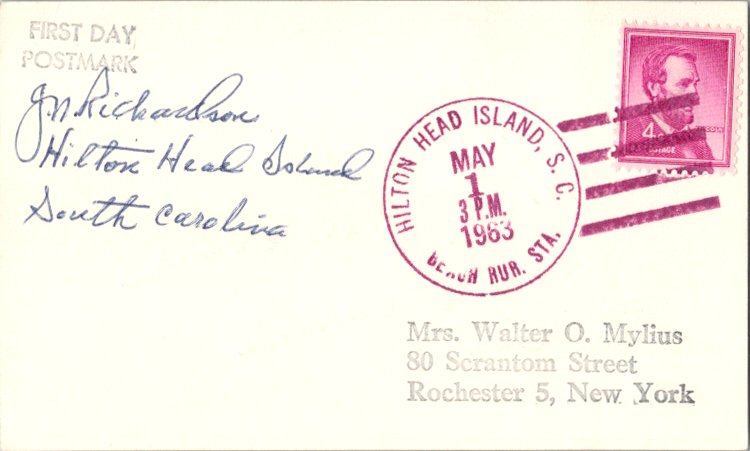 FIRST DAY
POSTMARK
J. N. Richardson
Hilton Head Island
South Carolina
HILTON HEAD ISLAND, S. C.
MAY
1
3 P.M.
1963
BEACH RUR. STA.
4¢
LINCOLN
POSTAGE
Mrs. Walter O. Mylius
80 Scrantom Street
Rochester 5, New York